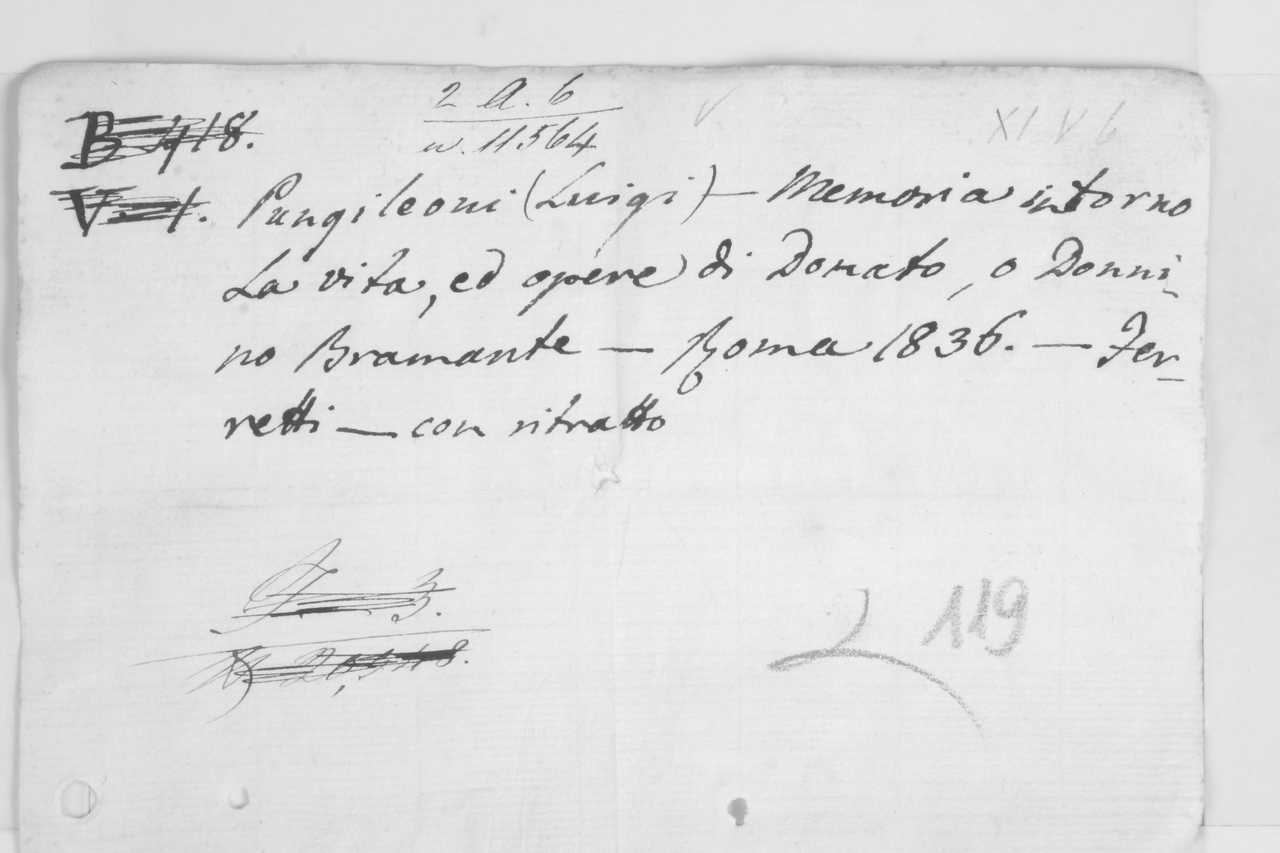 2 A. 6
n. 11564
XI V 6
B 418.
V 1. Pungileoni (Luigi) — Memoria intorno
La vita, ed opere di Donato, o Donni-
no Bramante — Roma 1836. — Fer-
retti — con ritratto
3.
119